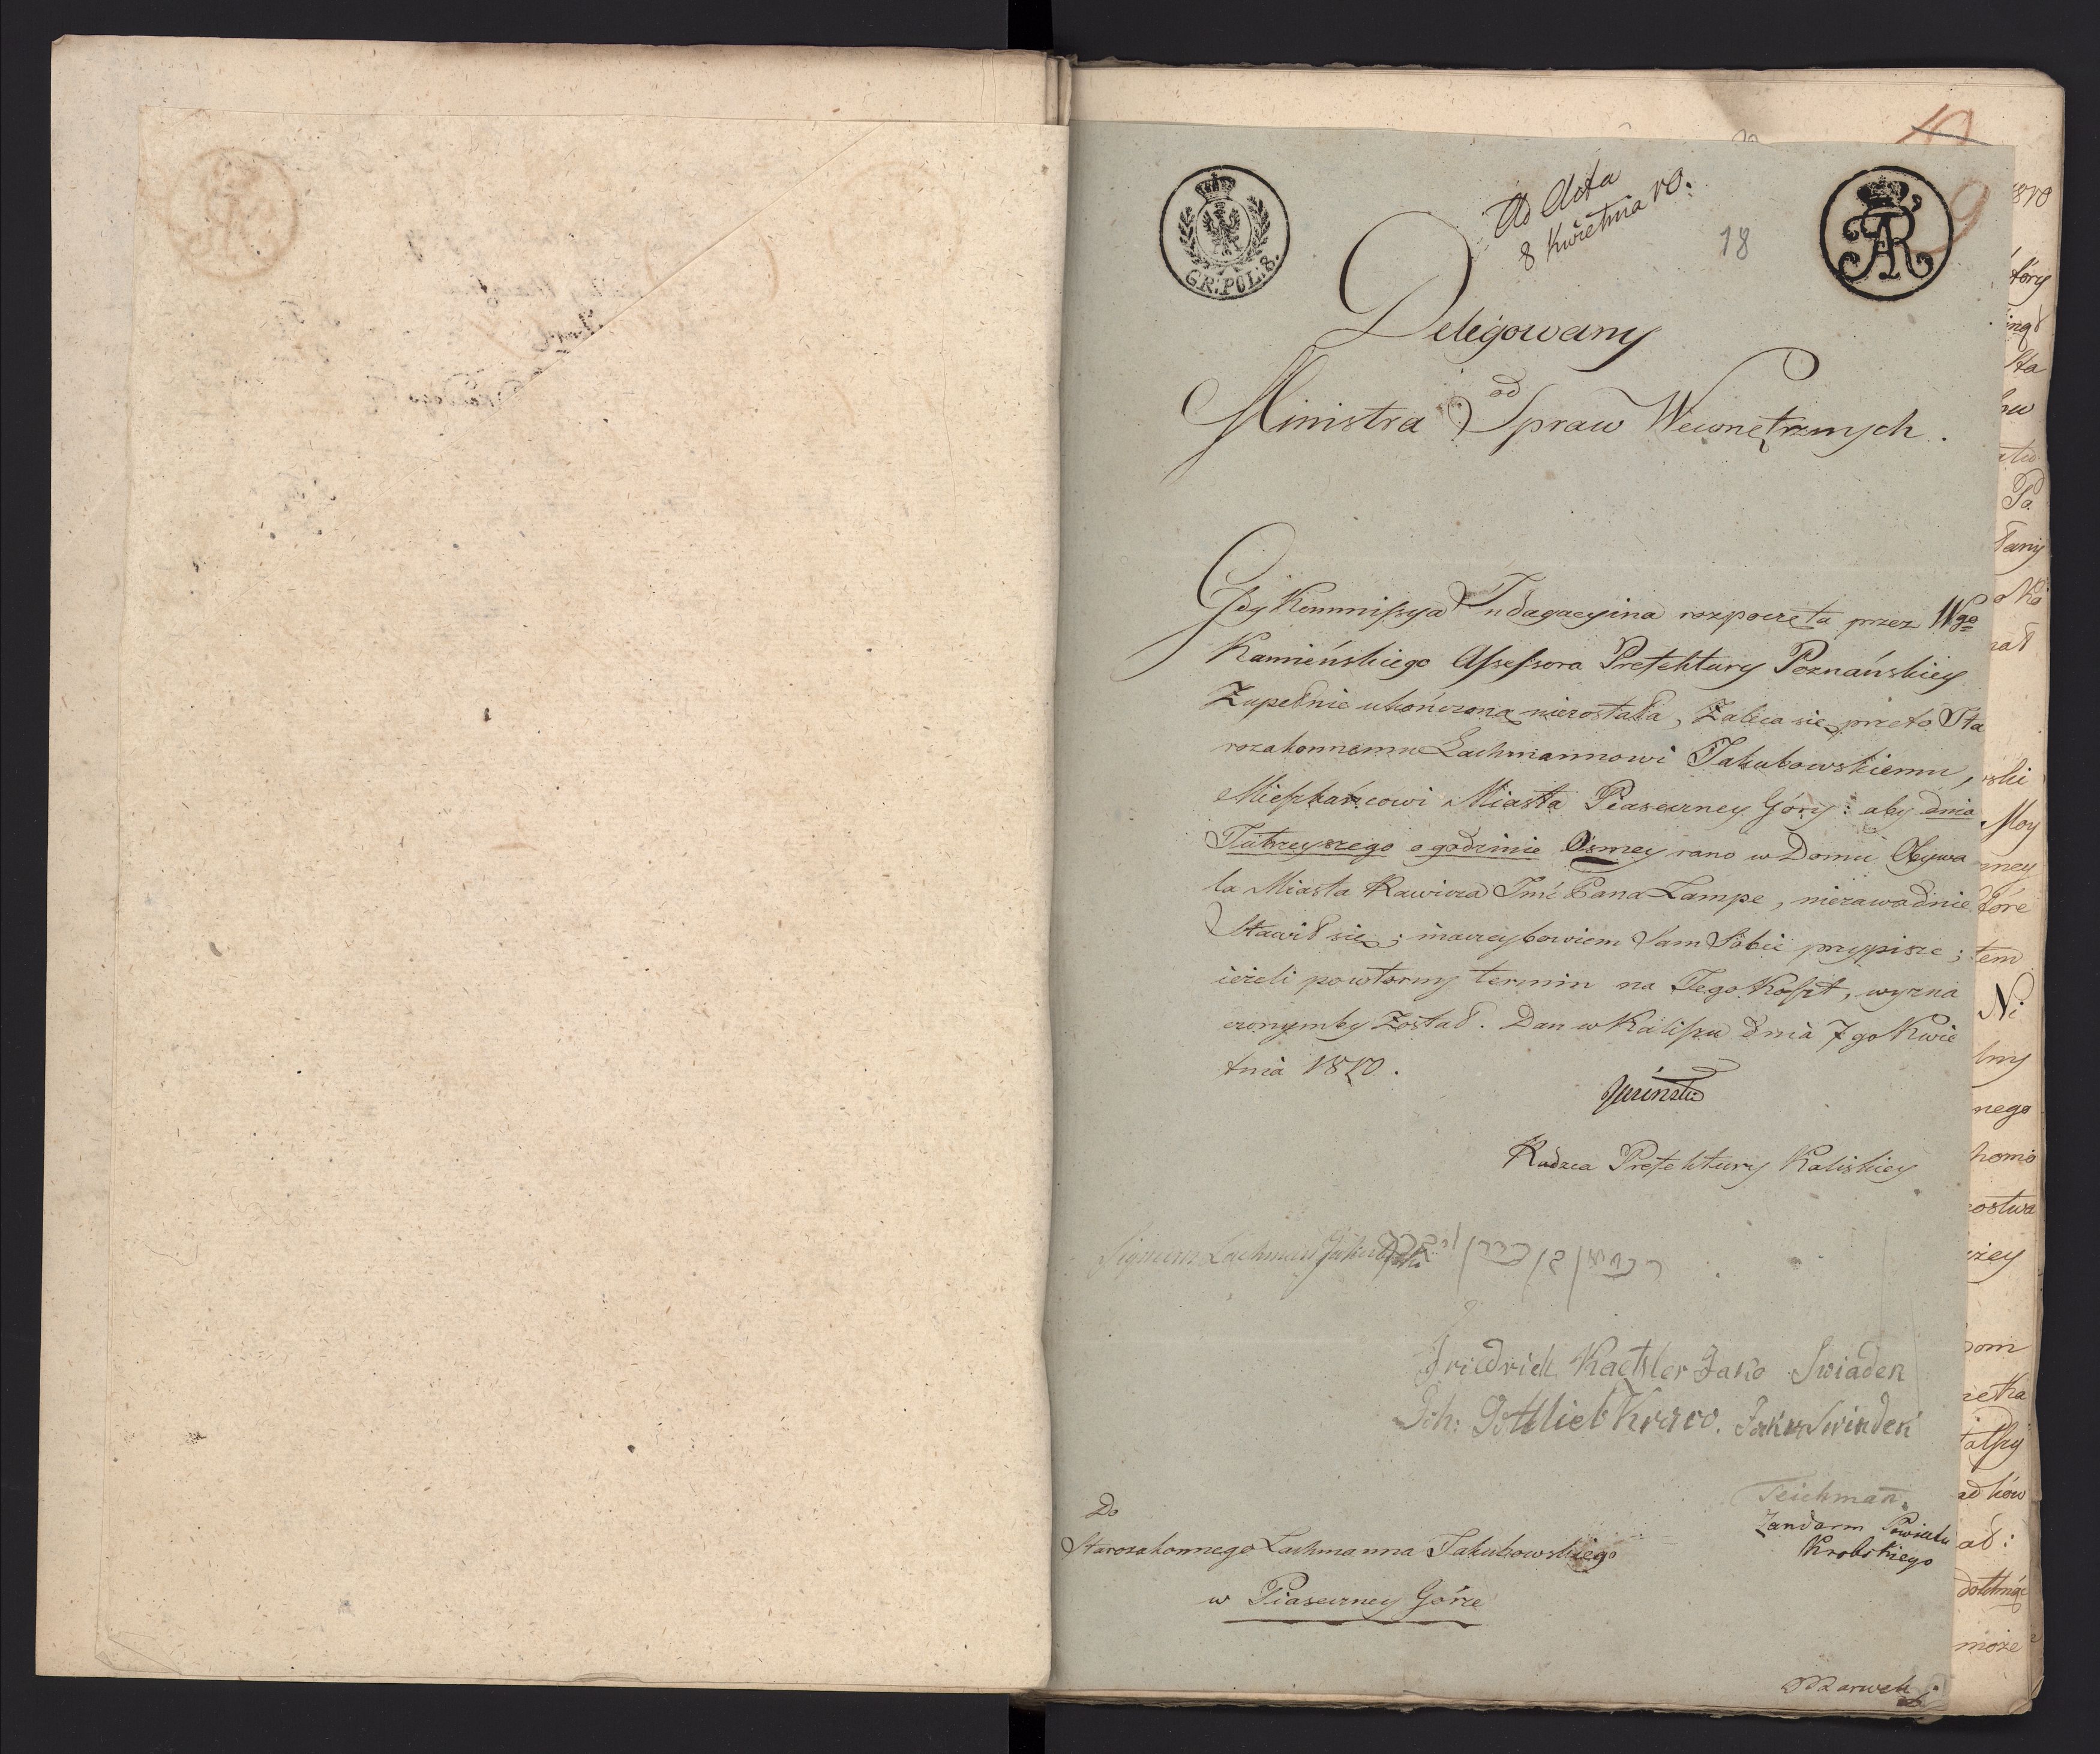 Ad Acta
8 Kwietnia 10.
19
9
18
GR: POL: 8.
AR
Delegowany
od
Ministra Spraw Wewnętrznych.
Gdy Kommissya Indagacyina rozpoczęta przez Wgo
Kamieńskiego Assessora Prefektury Poznańskiey
Zupełnie ukończoną niezostała, Zaleca się przeto Sta
rozakonnemu Lachmannowi Jakubowskiemu,
Mieszkańcowi Miasta Piaseczney Góry: aby dnia
Jutrzeyszego o godzinie Osmey rano w Domu Obywa
la Miasta Rawicza Jmć Pana Lampe, niezawodnie
Stawił się; inaczey bowiem Sam Sobie przypisze;
ieżeli powtorny termin na Jego Koszt, wyzna
czonymby Został. Dan w Kaliszu dnia 7go Kwie
tnia 1810.
Radzca Prefektury Kaliskiey
Signum Lachman Jakubowski
Friedrich Kaetzler Jako Swiadek
Joh: Gottlieb Jako Swiadek
Teichman.
Zandarm Powiatu
Krobskiego
Do
Starozakonnego Lachmanna Jakubowskiego
w Piaseczney Górze